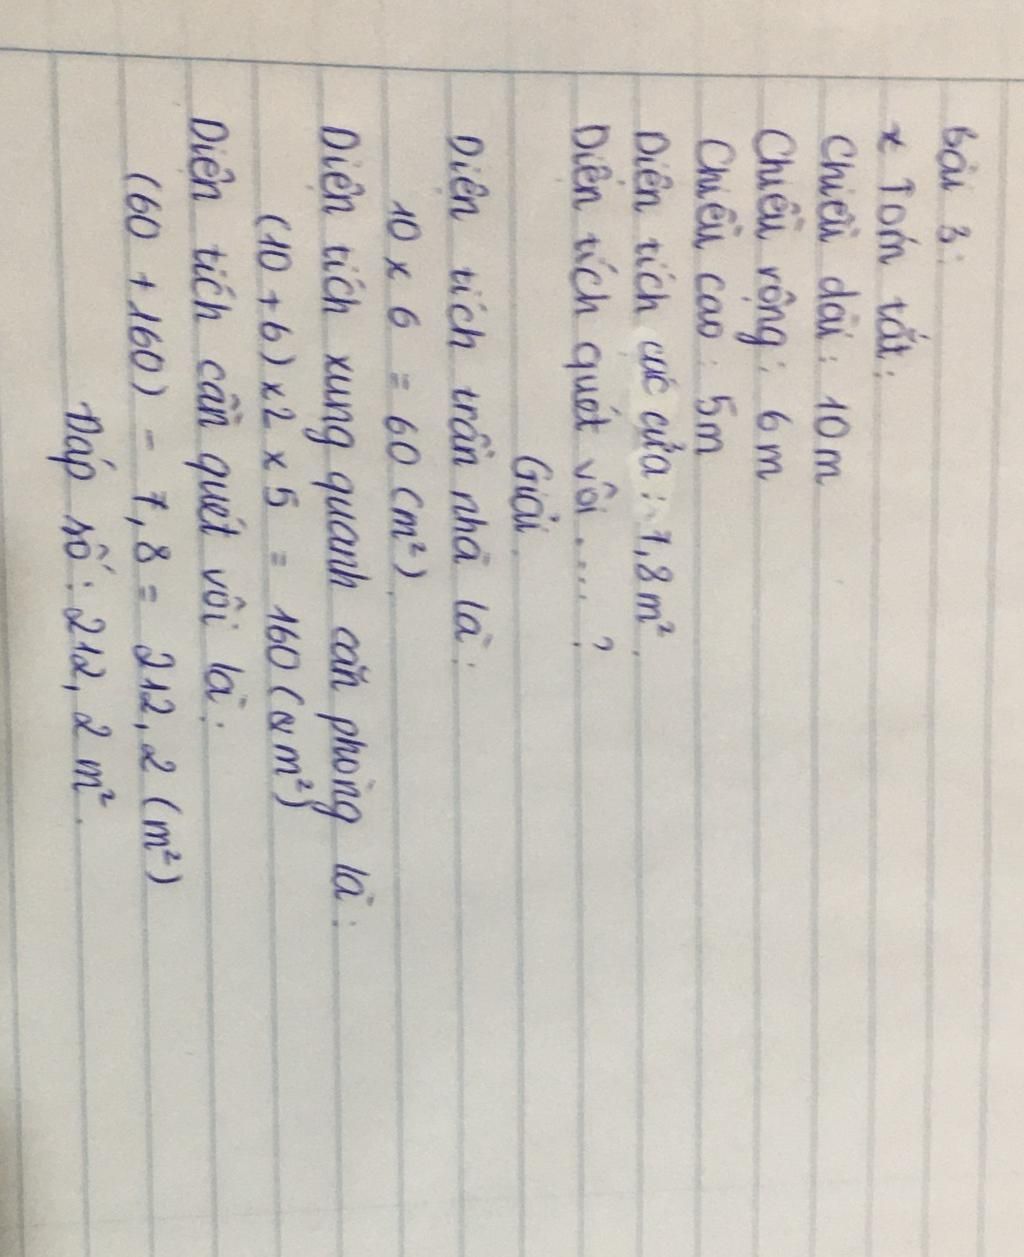 Bài 3:
x Tóm tắt:
Chiều dài: 10m
Chiều rộng: 6m
Chiều cao: 5m
Diện tích các cửa: 7,8m².
Diện tích quét vôi....?
Giải.
Diện tích trần nhà là:
10 x 6 = 60 (m²).
Diện tích xung quanh căn phòng là:
(10 + 6) x 2 x 5 = 160 (m²)
Diện tích cần quét vôi là:
(60 + 160) - 7,8 = 212,2 (m²)
Đáp số: 212,2 m².